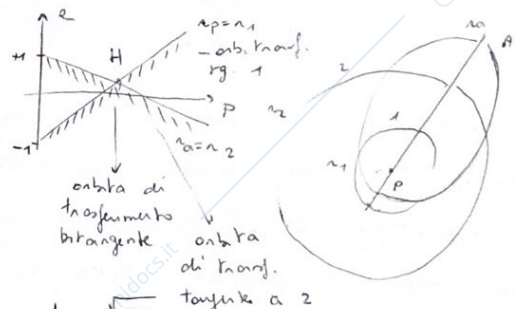 e
+1
H
rp = r1
- orb. transf.
tg. 1
P
ra = r2
-1
orbita di
trasferimento
bitangente
orbita
di transf.
tangente a 2
ra
A
2
r2
1
r1
P